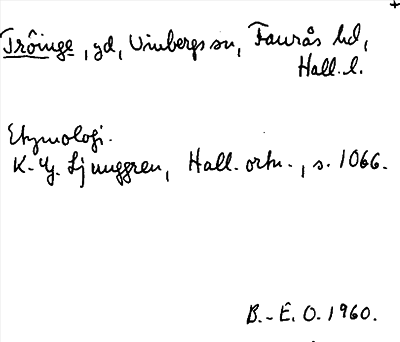 +
Tröinge, gd, Vinbergs sn, Faurås hd,
Hall. l.
Etymologi.
K.-G. Ljunggren, Hall. ortn., s. 1066.
B.-E. O. 1960.